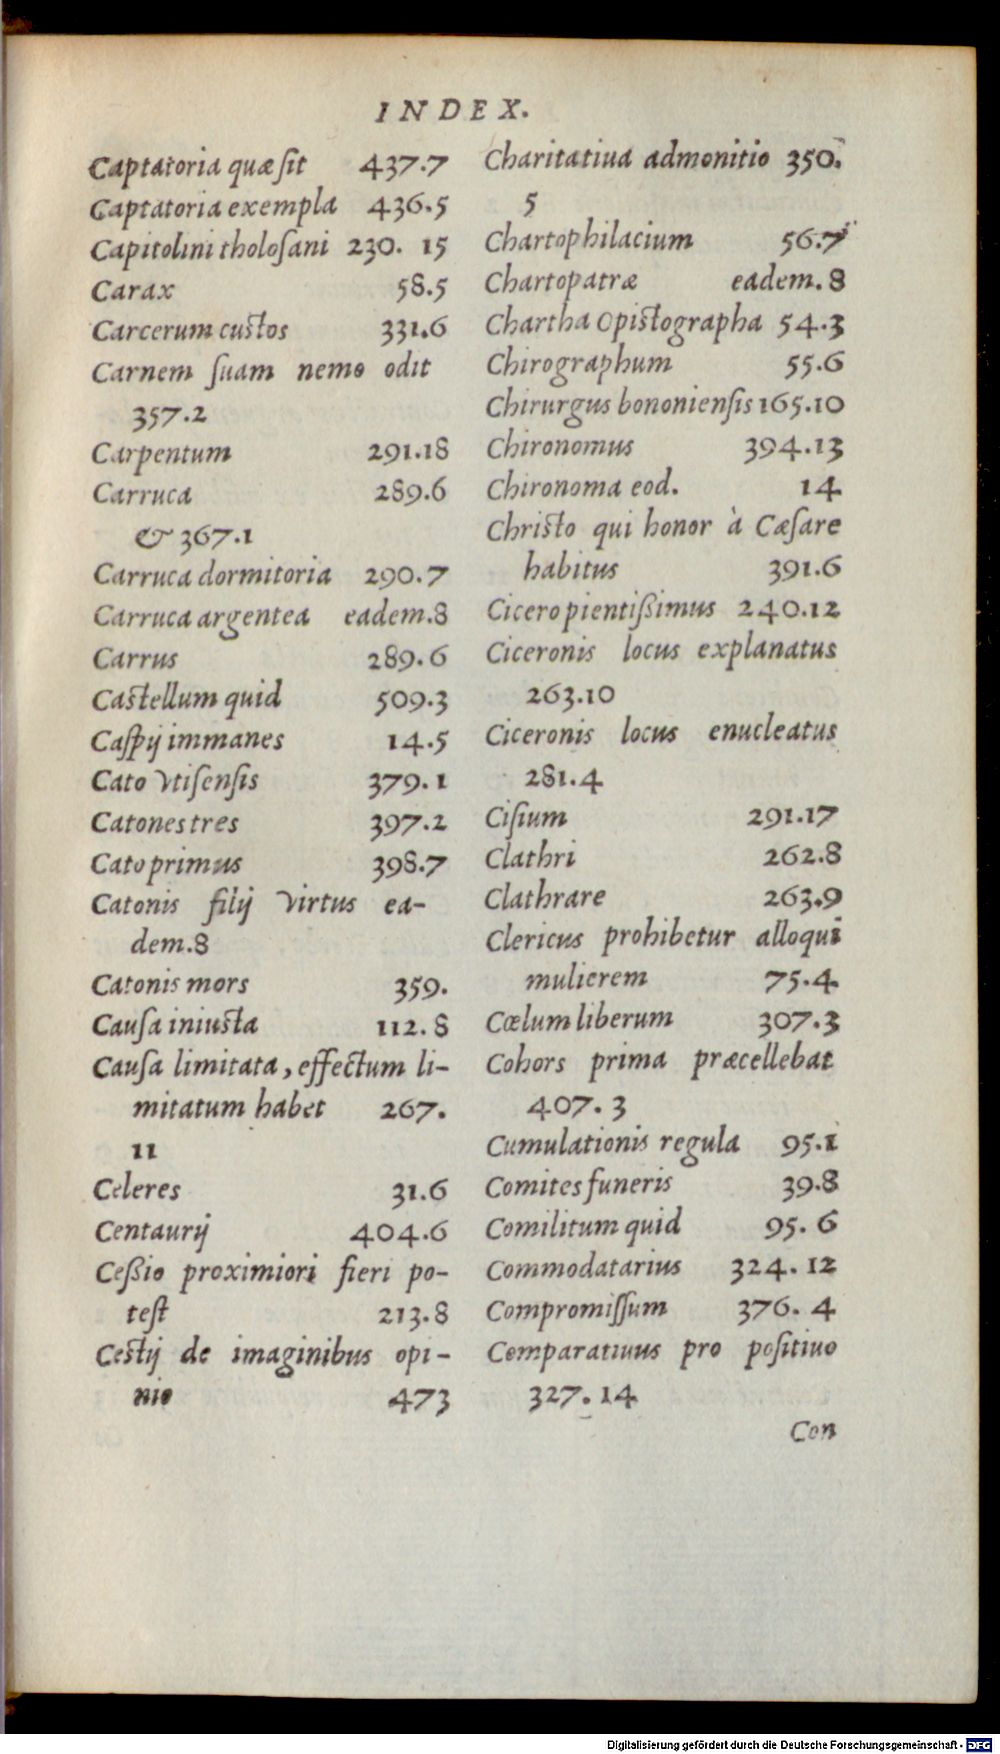 INDEX.
Captatoria quæ ſit 437.7
Captatoria exempla 436.5
Capitolini tholoſani 230. 15
Carax 58.5
Carcerum custos 331.6
Carnem ſuam nemo odit
357.2
Carpentum 291.18
Carruca 289.6
& 367.1
Carruca dormitoria 290.7
Carruca argentea eadem.8
Carrus 289.6
Castellum quid 509.3
Caſpij immanes 14.5
Cato vtiſenſis 379.1
Catones tres 397.2
Cato primus 398.7
Catonis filij virtus ea-
dem.8
Catonis mors 359.
Cauſa iniusta 112.8
Cauſa limitata, effectum li-
mitatum habet 267.
11
Celeres 31.6
Centaurij 404.6
Ceßio proximiori fieri po-
test 213.8
Cestij de imaginibus opi-
nio 473
Charitatiua admonitio 350.
5
Chartophilacium 56.7
Chartopatræ eadem.8
Chartha opistographa 54.3
Chirographum 55.6
Chirurgus bononienſis 165.10
Chironomus 394.13
Chironoma eod. 14
Christo qui honor à Cæſare
habitus 391.6
Cicero pientißimus 240.12
Ciceronis locus explanatus
263.10
Ciceronis locus enucleatus
281.4
Ciſium 291.17
Clathri 262.8
Clathrare 263.9
Clericus prohibetur alloqui
mulierem 75.4
Cœlum liberum 307.3
Cohors prima præcellebat
407.3
Cumulationis regula 95.1
Comites funeris 39.8
Comilitum quid 95.6
Commodatarius 324.12
Compromiſſum 376.4
Comparatiuus pro poſitiuo
327.14
Con
Digitalisierung gefördert durch die Deutsche Forschungsgemeinschaft - DFG